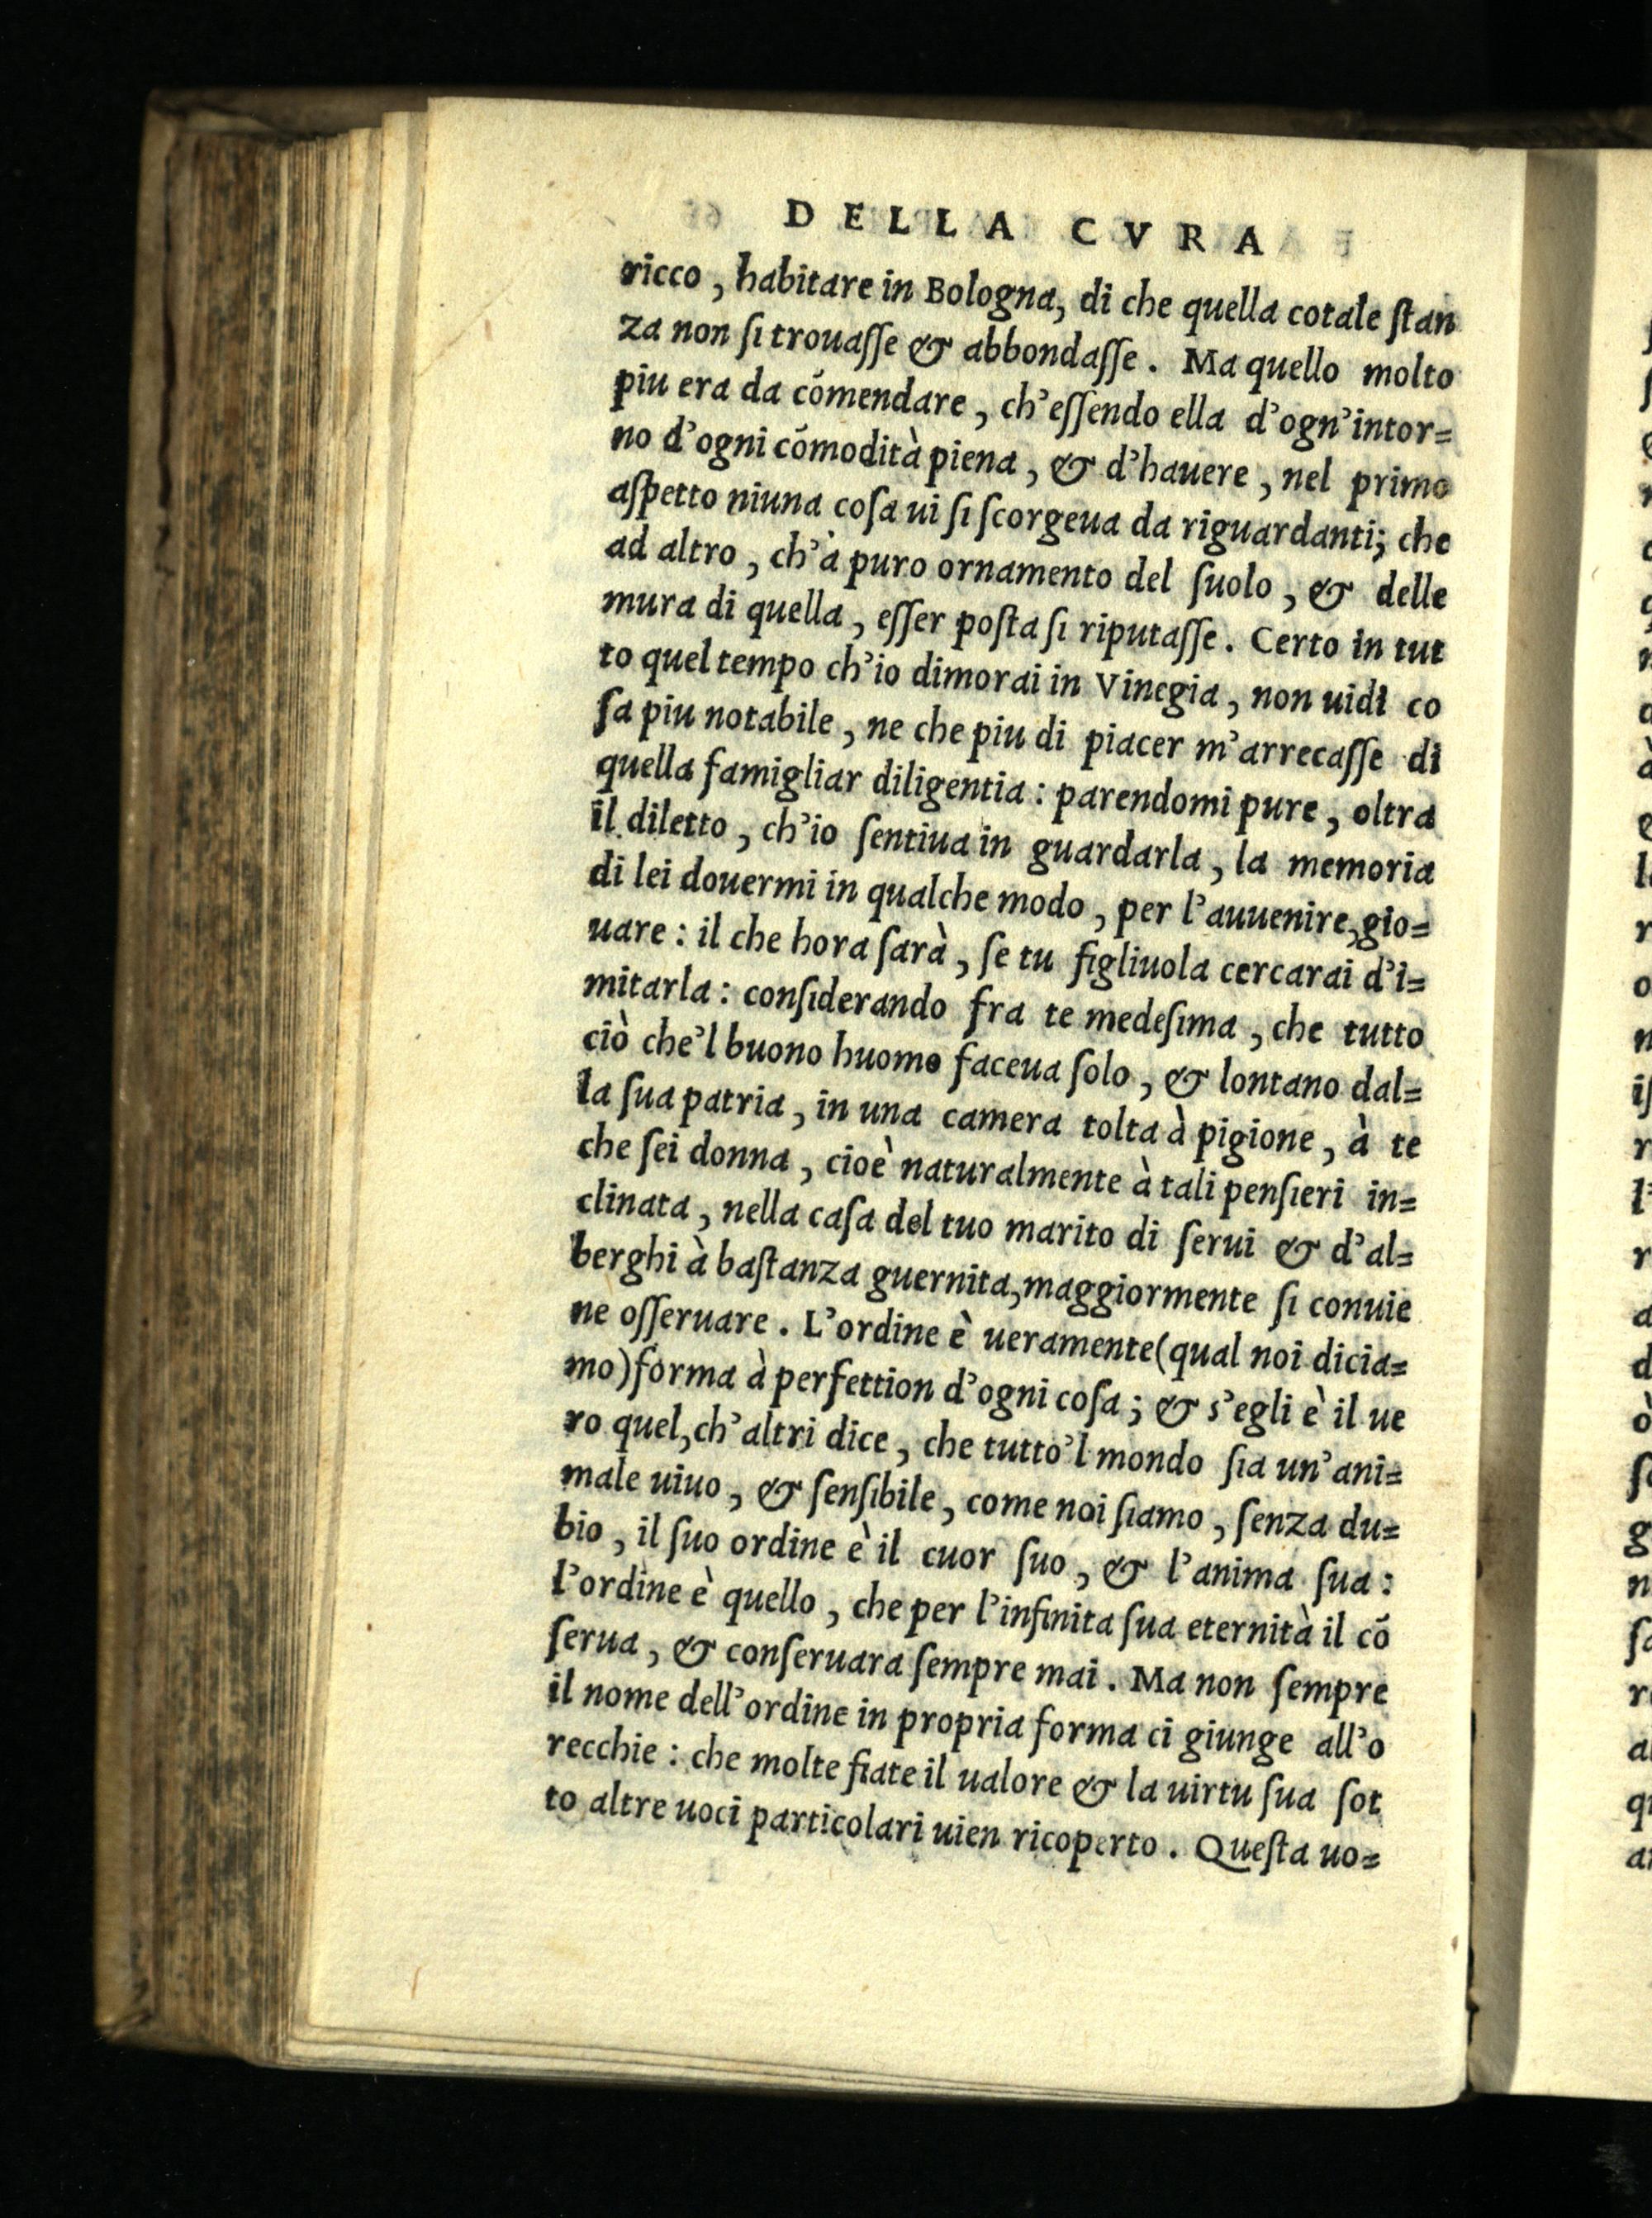 DELLA CVRA
ricco, habitare in Bologna, di che quella cotale ſtan
za non ſi trouaſſe & abbondaſſe. Ma quello molto
piu era da cómendare, ch'eſſendo ella d'ogn'intor=
no d'ogni cómodità piena, & d'hauere, nel primo
aſpetto niuna coſa ui ſi ſcorgeua da riguardanti; che
ad altro, ch'à puro ornamento del ſuolo, & delle
mura di quella, eſſer poſta ſi riputaſſe. Certo in tut
to quel tempo ch'io dimorai in Vinegia, non uidi co
ſa piu notabile, ne che piu di piacer m'arrecaſſe di
quella famigliar diligentia: parendomi pure, oltra
il diletto, ch'io ſentiua in guardarla, la memoria
di lei douermi in qualche modo, per l'auuenire, gio=
uare: il che hora ſarà, ſe tu figliuola cercarai d'i=
mitarla: conſiderando fra te medeſima, che tutto
ciò che'l buono huomo faceua ſolo, & lontano dal=
la ſua patria, in una camera tolta à pigione, à te
che ſei donna, cioè naturalmente à tali penſieri in=
clinata, nella caſa del tuo marito di ſerui & d'al=
berghi à baſtanza guernita, maggiormente ſi conuie
ne oſſeruare. L'ordine è ueramente (qual noi dicia=
mo) forma à perfettion d'ogni coſa; & s'egli è il ue
ro quel, ch'altri dice, che tutto'l mondo ſia un'ani=
male uiuo, & ſenſibile, come noi ſiamo, ſenza du=
bio, il ſuo ordine è il cuor ſuo, & l'anima ſua:
l'ordine è quello, che per l'infinita ſua eternità il có
ſerua, & conſeruara ſempre mai. Ma non ſempre
il nome dell'ordine in propria forma ci giunge all'o
recchie: che molte fiate il ualore & la uirtu ſua ſot
to altre uoci particolari uien ricoperto. Queſta uo=